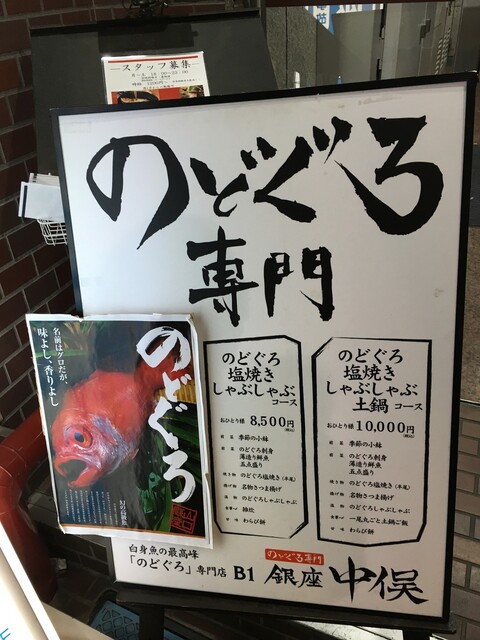 スタッフ募集
のどぐろ
専門
のどぐろ
塩焼き
しゃぶしゃぶ
コース
おひとり様 8,500円
(税込)
前菜 季節の小鉢
のどぐろ刺身
薄造り鮮魚
五点盛り
のどぐろ塩焼き(半尾)
名物さつま揚げ
のどぐろしゃぶしゃぶ
雑炊
わらび餅
のどぐろ
塩焼き
しゃぶしゃぶ
土鍋 コース
おひとり様 10,000円
(税込)
前菜 季節の小鉢
のどぐろ刺身
薄造り鮮魚
五点盛り
のどぐろ塩焼き(半尾)
名物さつま揚げ
のどぐろしゃぶしゃぶ
一尾丸ごと土鍋ご飯
わらび餅
のどぐろ
名前はグロだが、
味よし、香りよし
幻の高級魚
白身魚の最高峰
「のどぐろ」専門店 B1
のどぐろ専門
銀座 中俣